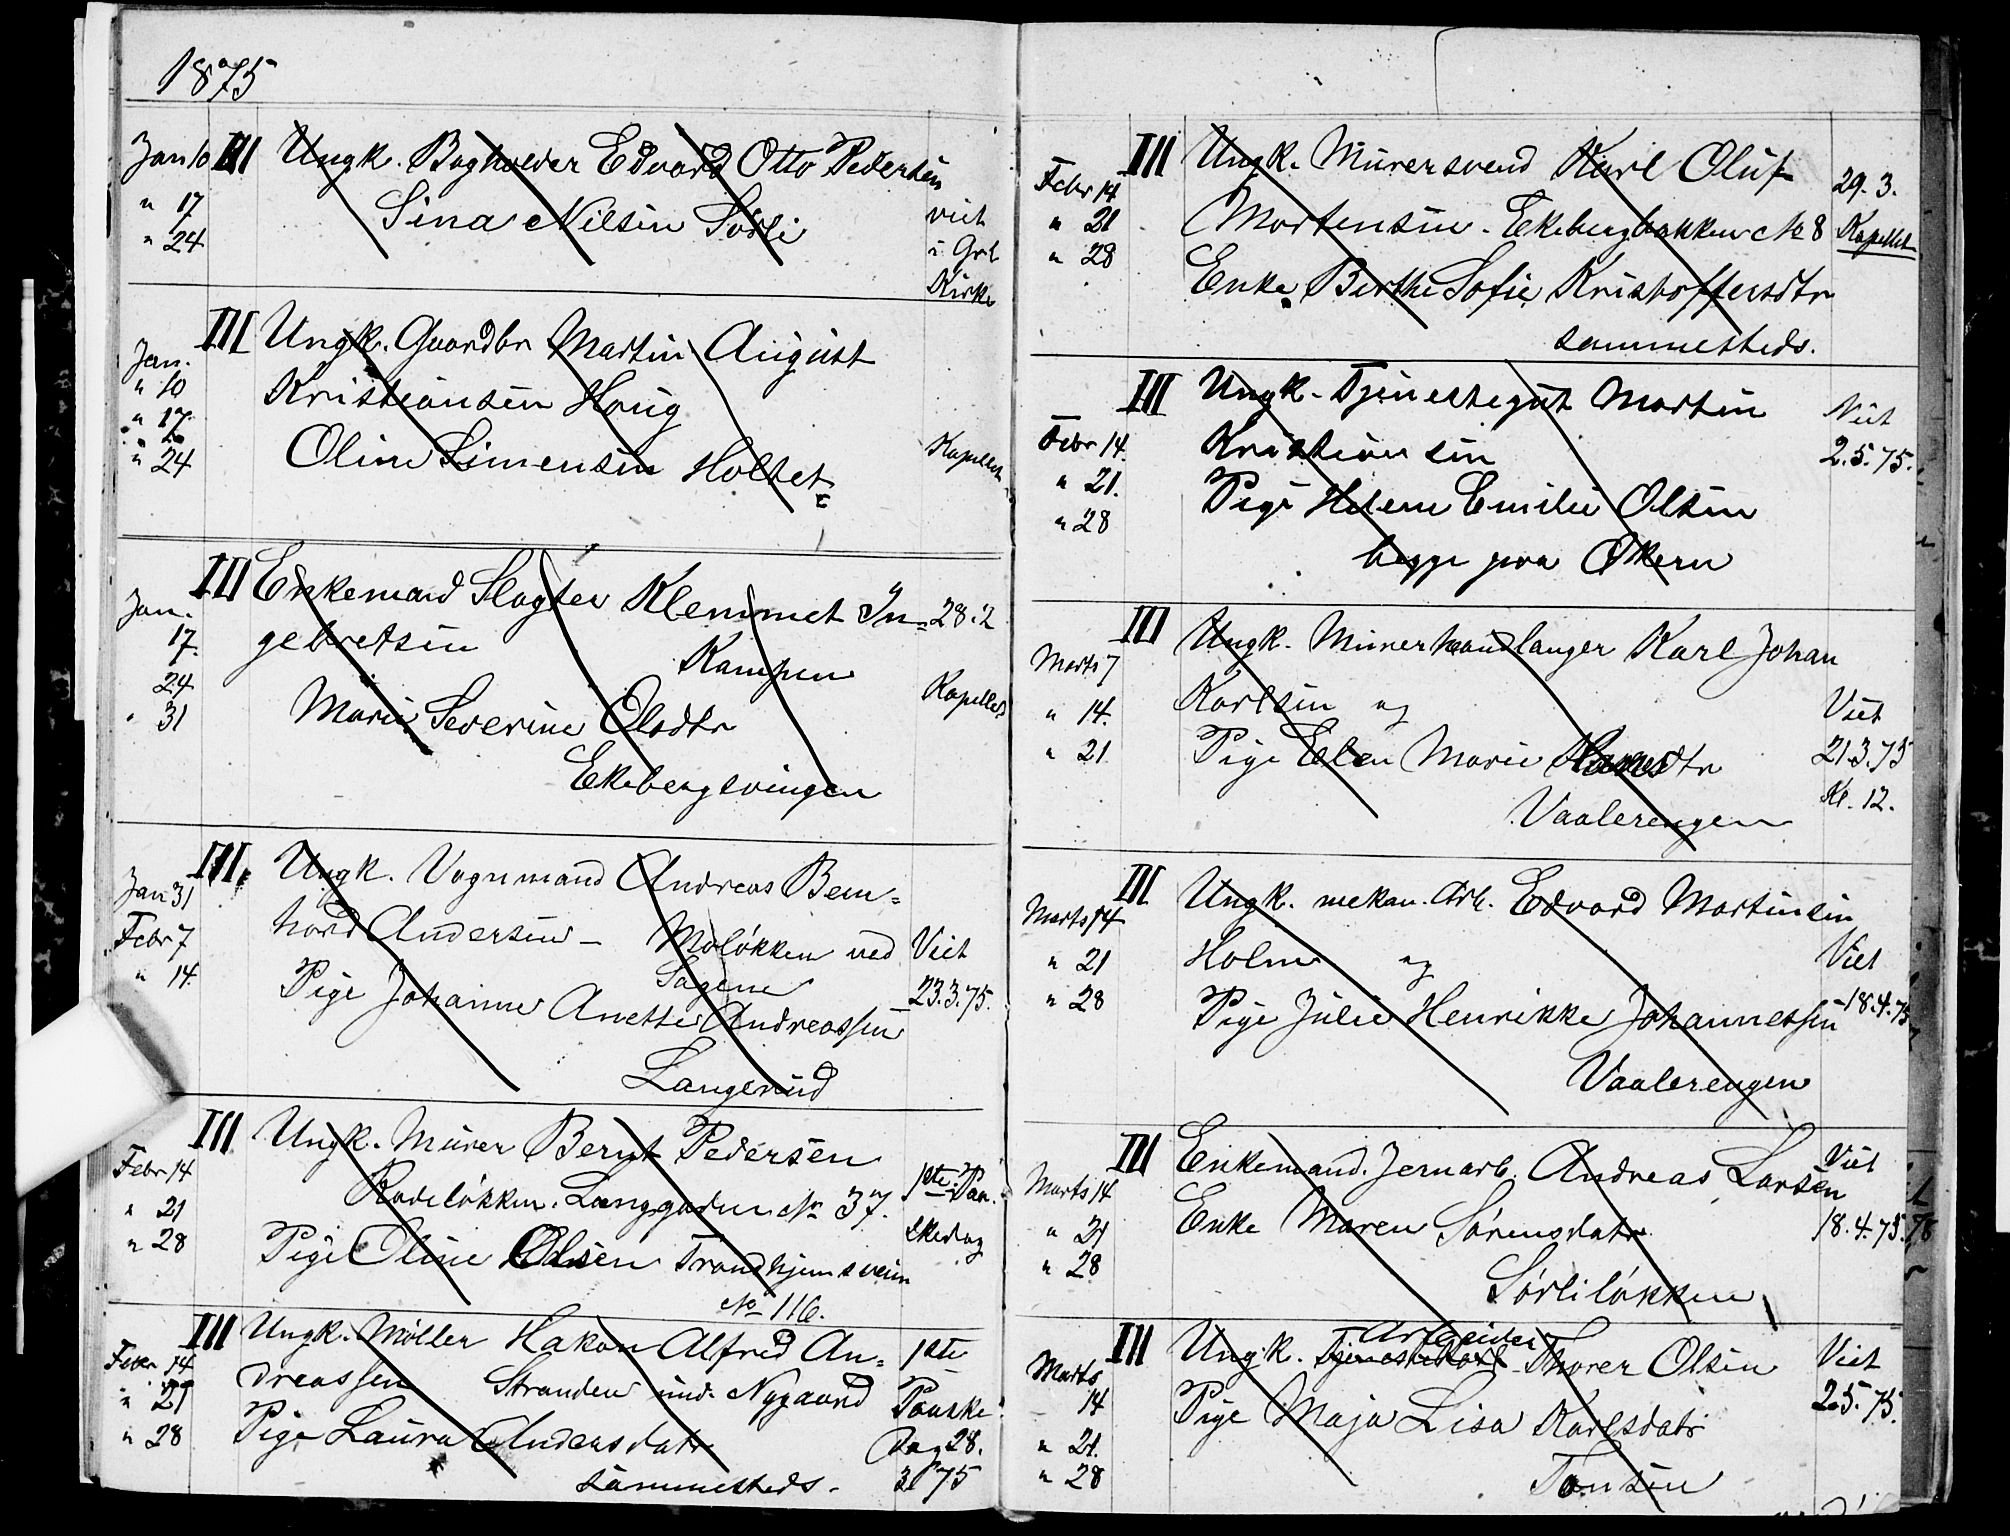 1875
Jan 10 III Ungk. Bogholder Edvard Otto Pedersen
" 17 Sina Nilsen Sørli viet
" 24 i Grl
Kirke
III Ungk. Gaardbr Martin August
Jan.
" 10 Kristiansen Houg
" 17
" 24 Oline Simensen Holtet Kapellet
III Enkemand Slagter Klemmet In= 28.2
Jan.
17. gebretsen Kampen
24 Kapellet
" 31 Marie Severine Olsdtr
Ekebergsvingen
III. Ungk. Vognmand Andreas Bern=
Jan 31
Febr 7 hard Andersen - Moløkken ved Viet
" 14 Sagene 23.3.75.
Pige Johanne Anette Andreassen
Langerud
III Ungk. Murer Bernt Pedersen
Febr 14 Rodeløkken. Langgaden No 37. 1ste Paa-
" 21 skedag
" 28 Pige Oline Olsen Trondhjemsveien
No 116.
III Ungk. Møller Hakon Alfred An= 1ste
Febr 14
" 21 dreassen Stranden und. Nygaard Paaske
" 28 Pige Laura Andersdatr Dag 28.
sammesteds. 3 75
III Ungk. Murersvend Karl Oluf 29.3.
Febr 14
" 21 Mortensen. Ekebergbakken No 8 Kapellet
" 28 Enke Berthe Sofie Kristoffersdtr
sammesteds.
III Ungk. Tjenestegut Martin Viet
Febr 14. Kristiansen 2.5.75.
" 21. Pige Helene Emilie Olsen
" 28
begge paa Økern
III Ungk. Murerhandlanger Karl Johan
Marts 7
" 14. Karlsen og Viet
" 21 Pige Elen Marie Hansdtr 21.3.75
Vaalerengen Kl. 12.
III Ungk. mekan. Arb. Edvard Martinsen
Marts 14
" 21 Holm og Viet
" 28 Pige Julie Henrikke Johannessen 18.4.75
Vaalerengen
III Enkemand. Jernarb. Andreas Larsen Viet
Marts 14
" 21 Enke Maren Sørensdatr 18.4.75.
" 28
Sørliløkken
Arbeider
III Ungk. Tjenestekarl Thorer Olsen Viet
Marts
14 Pige Maja Lisa Karlsdatr 2.5.75.
" 21.
" 28 Tonsen